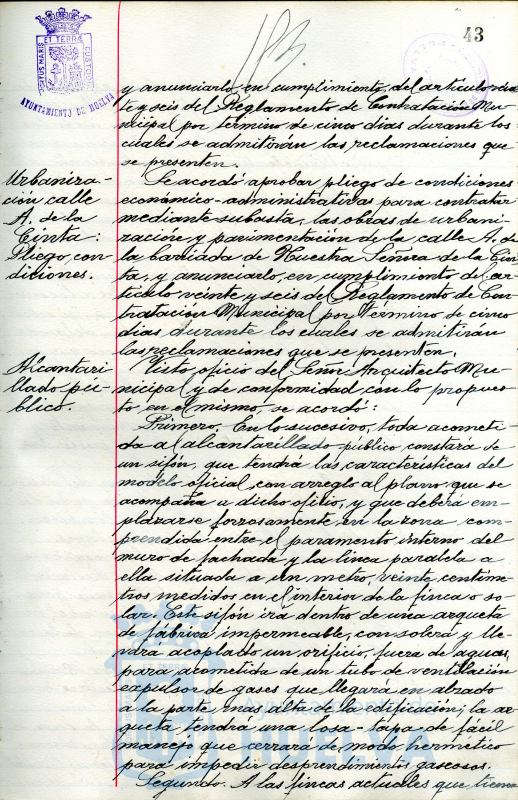 43
PORTUS MARIS ET TERRÆ CUSTODIA
AYUNTAMIENTO DE HUELVA
y anunciarlo, en cumplimiento del artículo vein-
te y seis del Reglamento de Contratación Mu-
nicipal por término de cinco días durante los
cuales se admitirán las reclamaciones que
se presenten.
Urbaniza-
ción calle
A. de la
Cinta:
Pliego con-
diciones.
Se acordó aprobar pliego de condiciones
económico-administrativas para contratar
mediante subasta, las obras de urbani-
zación y pavimentación de la calle A. de
la barriada de Nuestra Señora de la Cin-
ta, y anunciarlo, en cumplimiento del ar-
tículo veinte y seis del Reglamento de Con-
tratación Municipal por término de cinco
días durante los cuales se admitirán
las reclamaciones que se presenten.
Alcantari-
llado pú-
blico.
Visto oficio del Señor Arquitecto Mu-
nicipal y de conformidad con lo propues-
to en el mismo, se acordó:
Primero. En lo sucesivo, toda acometi-
da a alcantarillado público constará de
un sifón, que tendrá las características del
modelo oficial con arreglo al plano que se
acompaña a dicho oficio, y que deberá em-
plazarse forzosamente en la zona com-
prendida entre el paramento interno del
muro de fachada y la linea paralela a
ella situada a un metro, veinte centíme-
tros medidos en el interior de la finca o so-
lar. Este sifón irá dentro de una arqueta
de fábrica impermeable, con solera y lle-
vará acoplado un orificio, fuera de aguas,
para acometida de un tubo de ventilación
expulsor de gases que llegará en alzado
a la parte mas alta de la edificación; la ar-
queta tendrá una losa-tapa de fácil
manejo que cerrará de modo hermético
para impedir desprendimientos gaseosos.
Segundo. A las fincas actuales que tienen
HUELVA